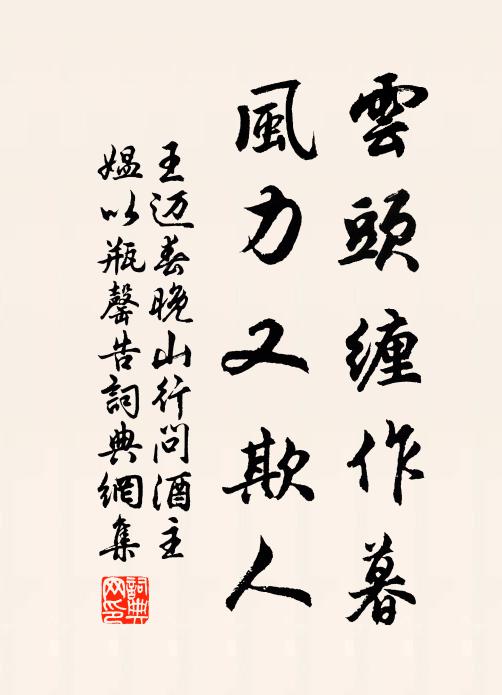 雲頭纏作暮
風力又欺人
王迈春晚山行问酒主
媪以瓶罄告詞典網集
詞典
网印